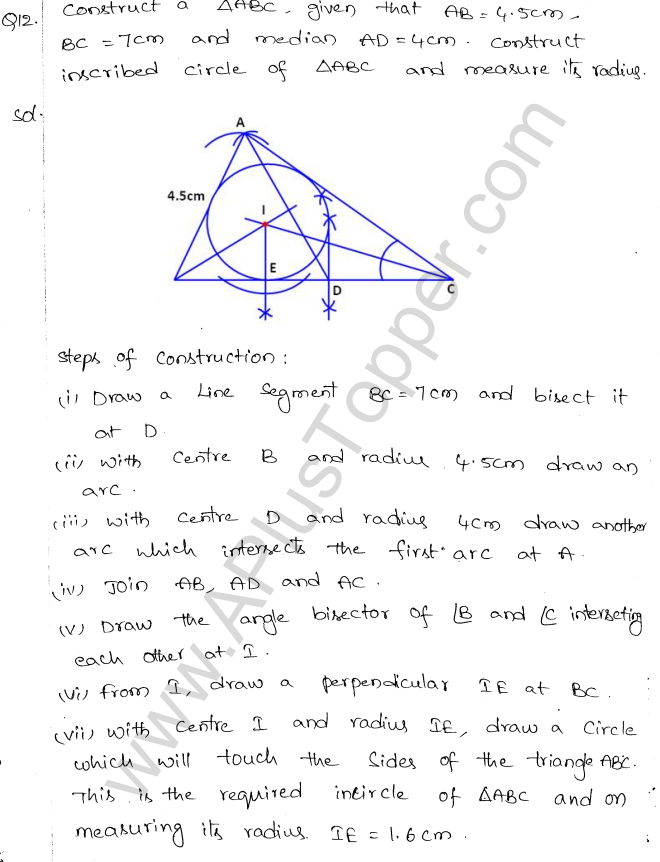 Q12. Construct a ΔABC, given that AB = 4.5cm,
BC = 7cm and median AD = 4cm. construct
inscribed circle of ΔABC and measure its radius.
Sol.
A
4.5cm
I
E
D
C
Steps of construction:
(i) Draw a Line Segment BC = 7cm and bisect it
at D.
(ii) with Centre B and radius 4.5cm draw an
arc.
(iii) with Centre D and radius 4cm draw another
arc which intersects the first arc at A.
(iv) Join AB, AD and AC.
(v) Draw the angle bisector of ∠B and ∠C interseting
each other at I.
(vi) from I, draw a perpendicular IE at BC.
(vii) with Centre I and radius IE, draw a Circle
which will touch the Sides of the triangle ABC.
This is the required incircle of ΔABC and on
measuring its radius IE = 1.6cm.
www.APlusTopper.com